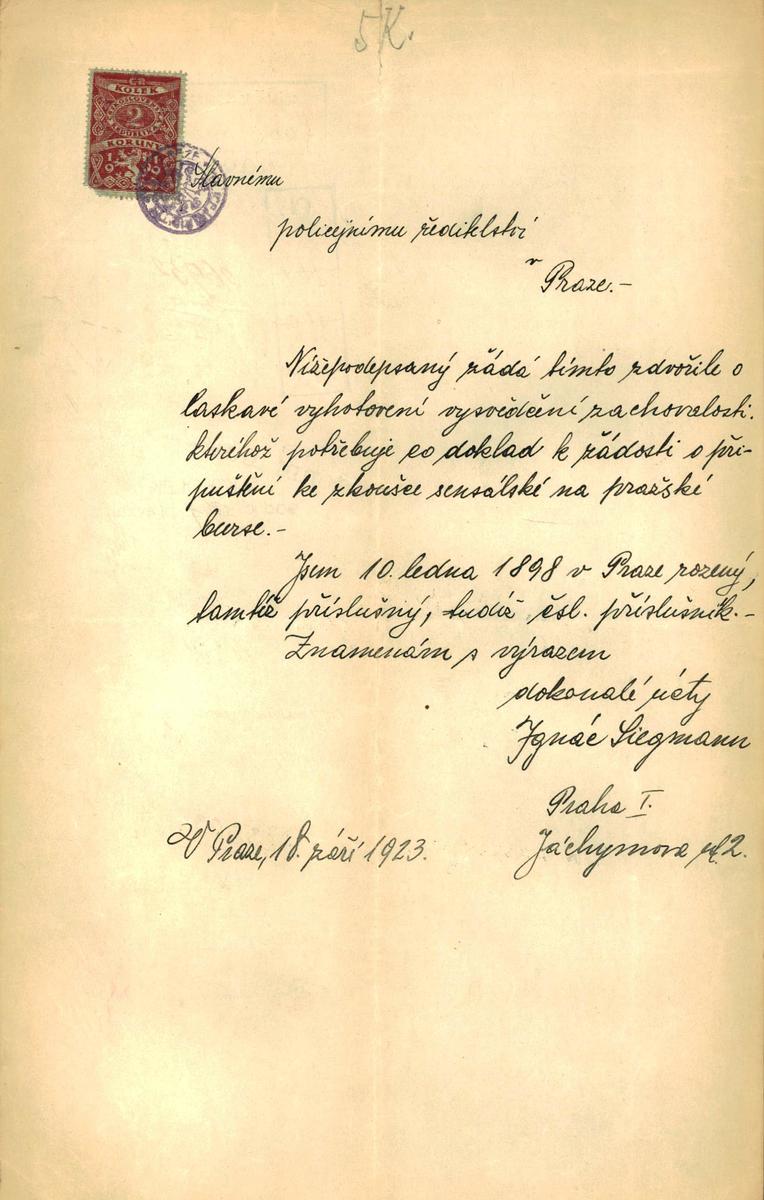 5K.
ČR
KOLEK
2
KORUNY
1919
Slavnému
policejnímu ředitelství
v
Praze.-
Nížepodepsaný žádá tímto zdvořile o
laskavé vyhotovení vysvědčení zachovalosti.
kteréhož potřebuje co doklad k žádosti o při-
puštění ke zkoušce sensálské na pražské
burse.-
Jsem 10. ledna 1898 v Praze rozený,
tamtéž příslušný, tudíž čsl. příslušník.-
Znamenám s výrazem
dokonalé úcty
Ignác Siegmann
Praha I.
V Praze, 18. září 1923.
Jáchymova ul. 2.